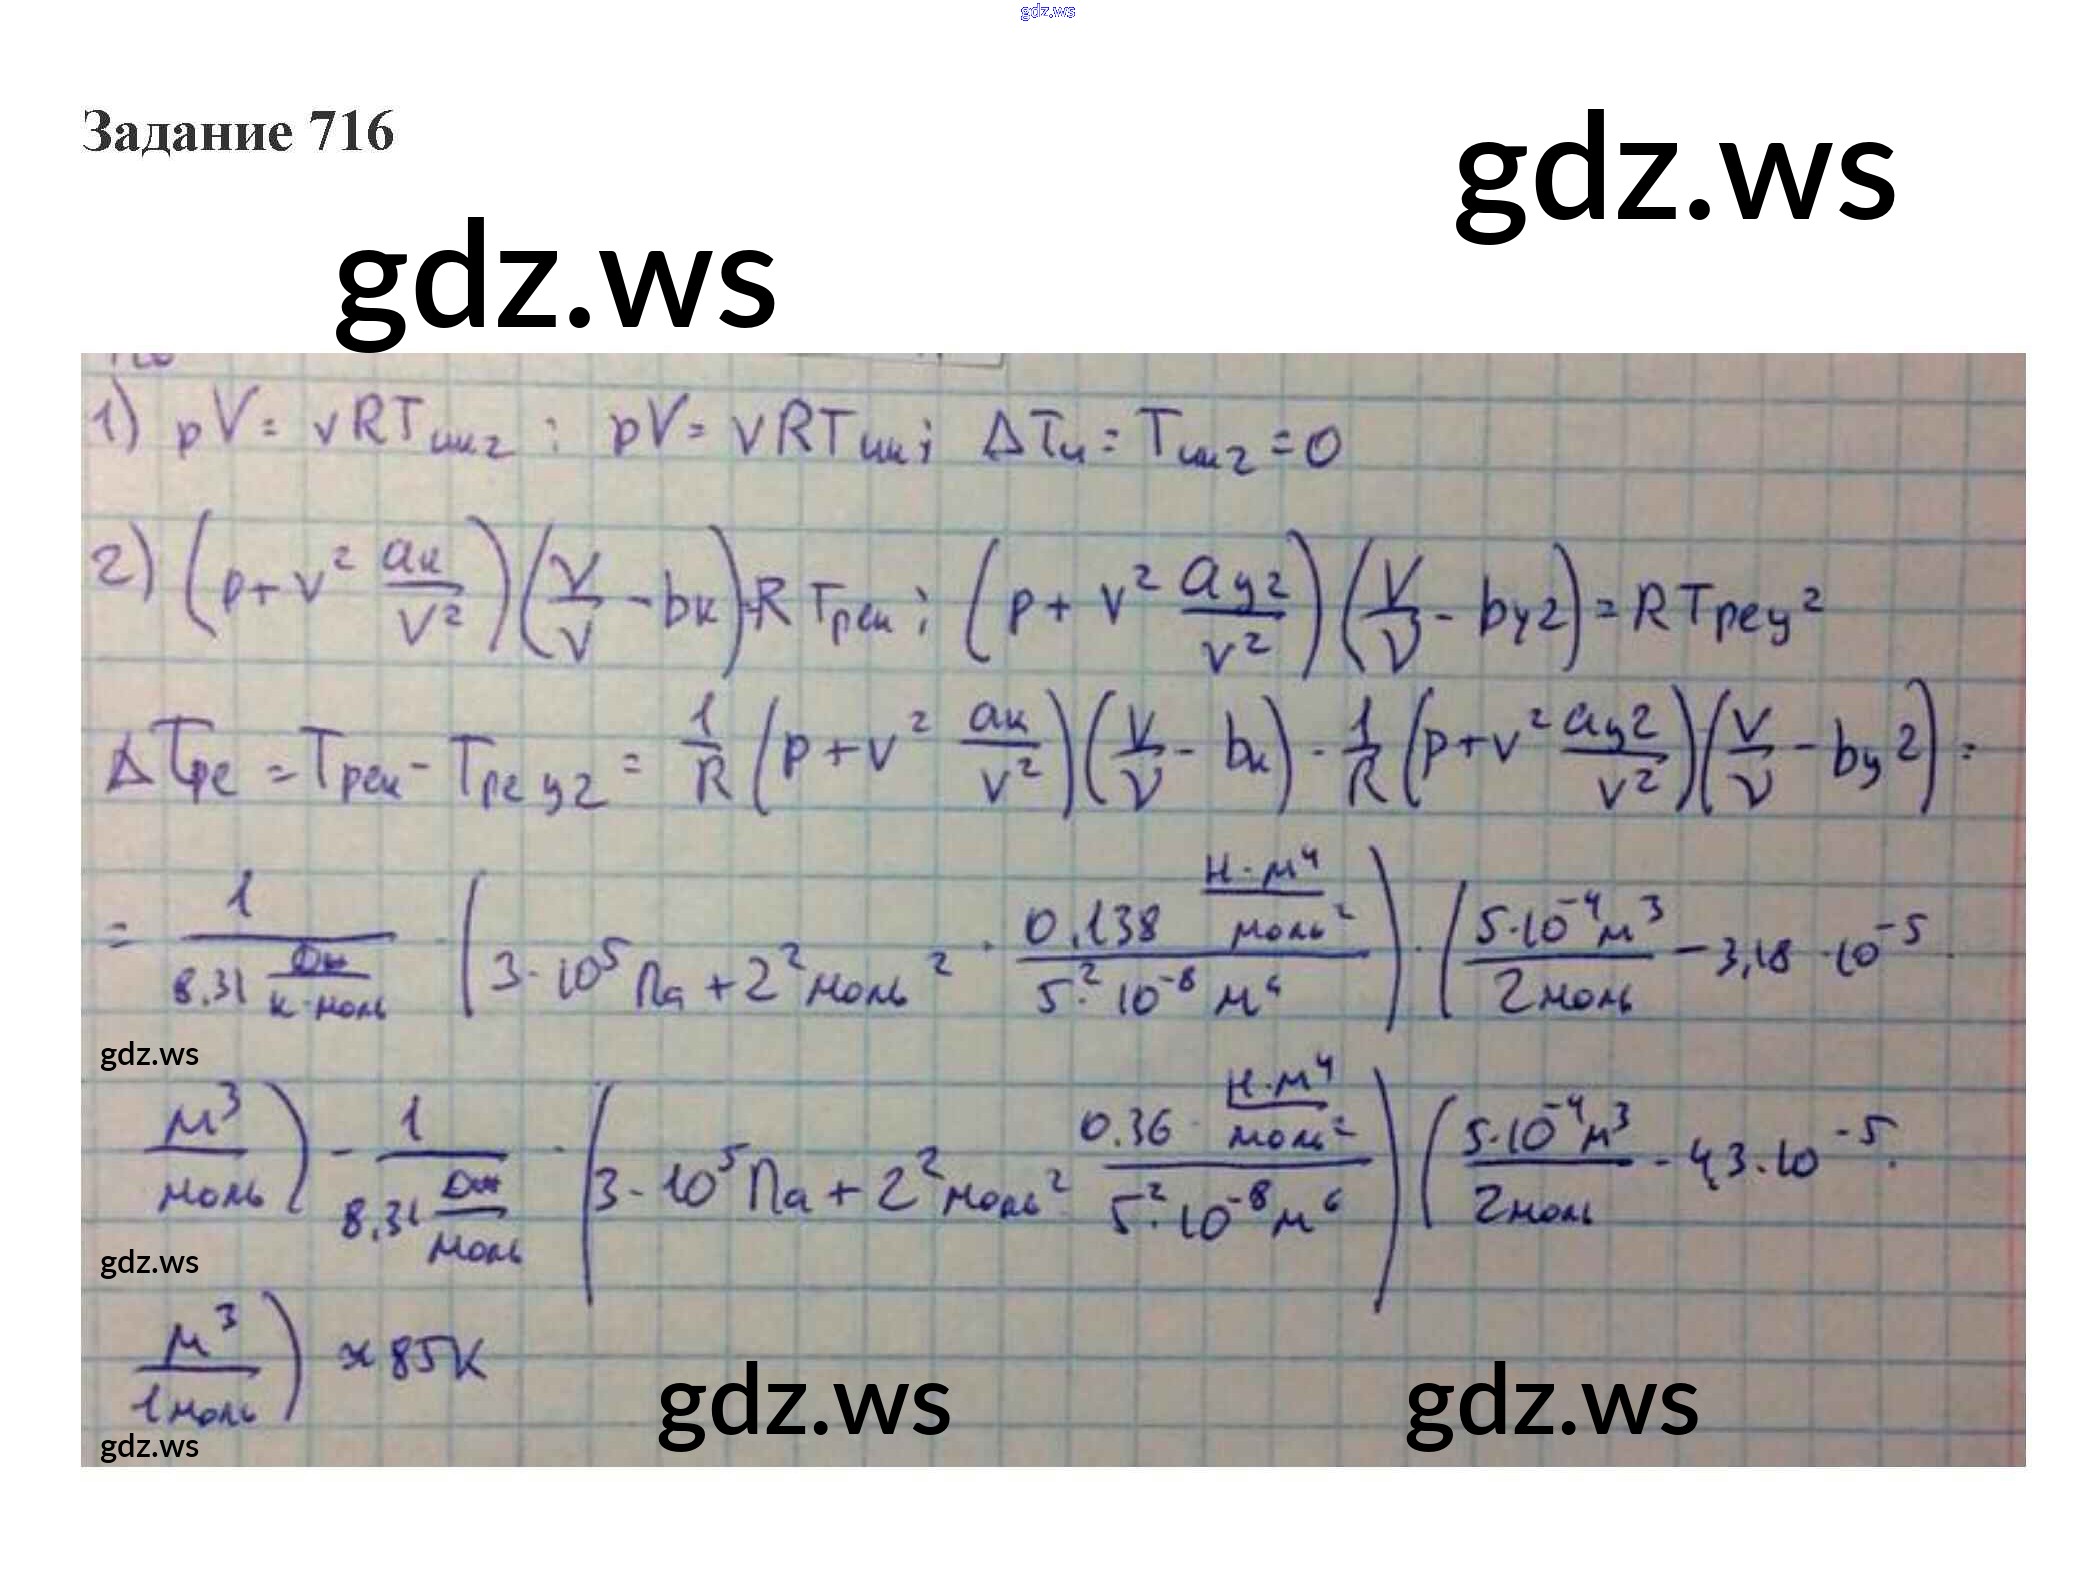 gdz.ws
Задание 716
gdz.ws
gdz.ws
1) pV = νRT ик2 ; pV = νRT ик ; ΔTи = T ик2 = 0
2) (p + ν² aк/V²)(V/ν - bк) = RTрек ; (p + ν² aу2/V²)(V/ν - bу2) = RTреу2
ΔTре = Tрек - Tреу2 = 1/R (p + ν² aк/V²)(V/ν - bк) - 1/R (p + ν² aу2/V²)(V/ν - bу2) =
= 1/(8.31 Дж/(К·моль)) · (3·10⁵ Па + 2² моль² · 0.138 Н·м⁴/моль² / 5²·10⁻⁸ м⁶) · (5·10⁻⁴ м³/2 моль - 3,18·10⁻⁵ ·
gdz.ws
м³/моль) - 1/(8.31 Дж/моль) · (3·10⁵ Па + 2² моль² 0.36 Н·м⁴/моль² / 5²·10⁻⁸ м⁶) (5·10⁻⁴ м³/2 моль - 4,3·10⁻⁵ ·
gdz.ws
м³/1 моль) ≈ 85 К
gdz.ws
gdz.ws
gdz.ws